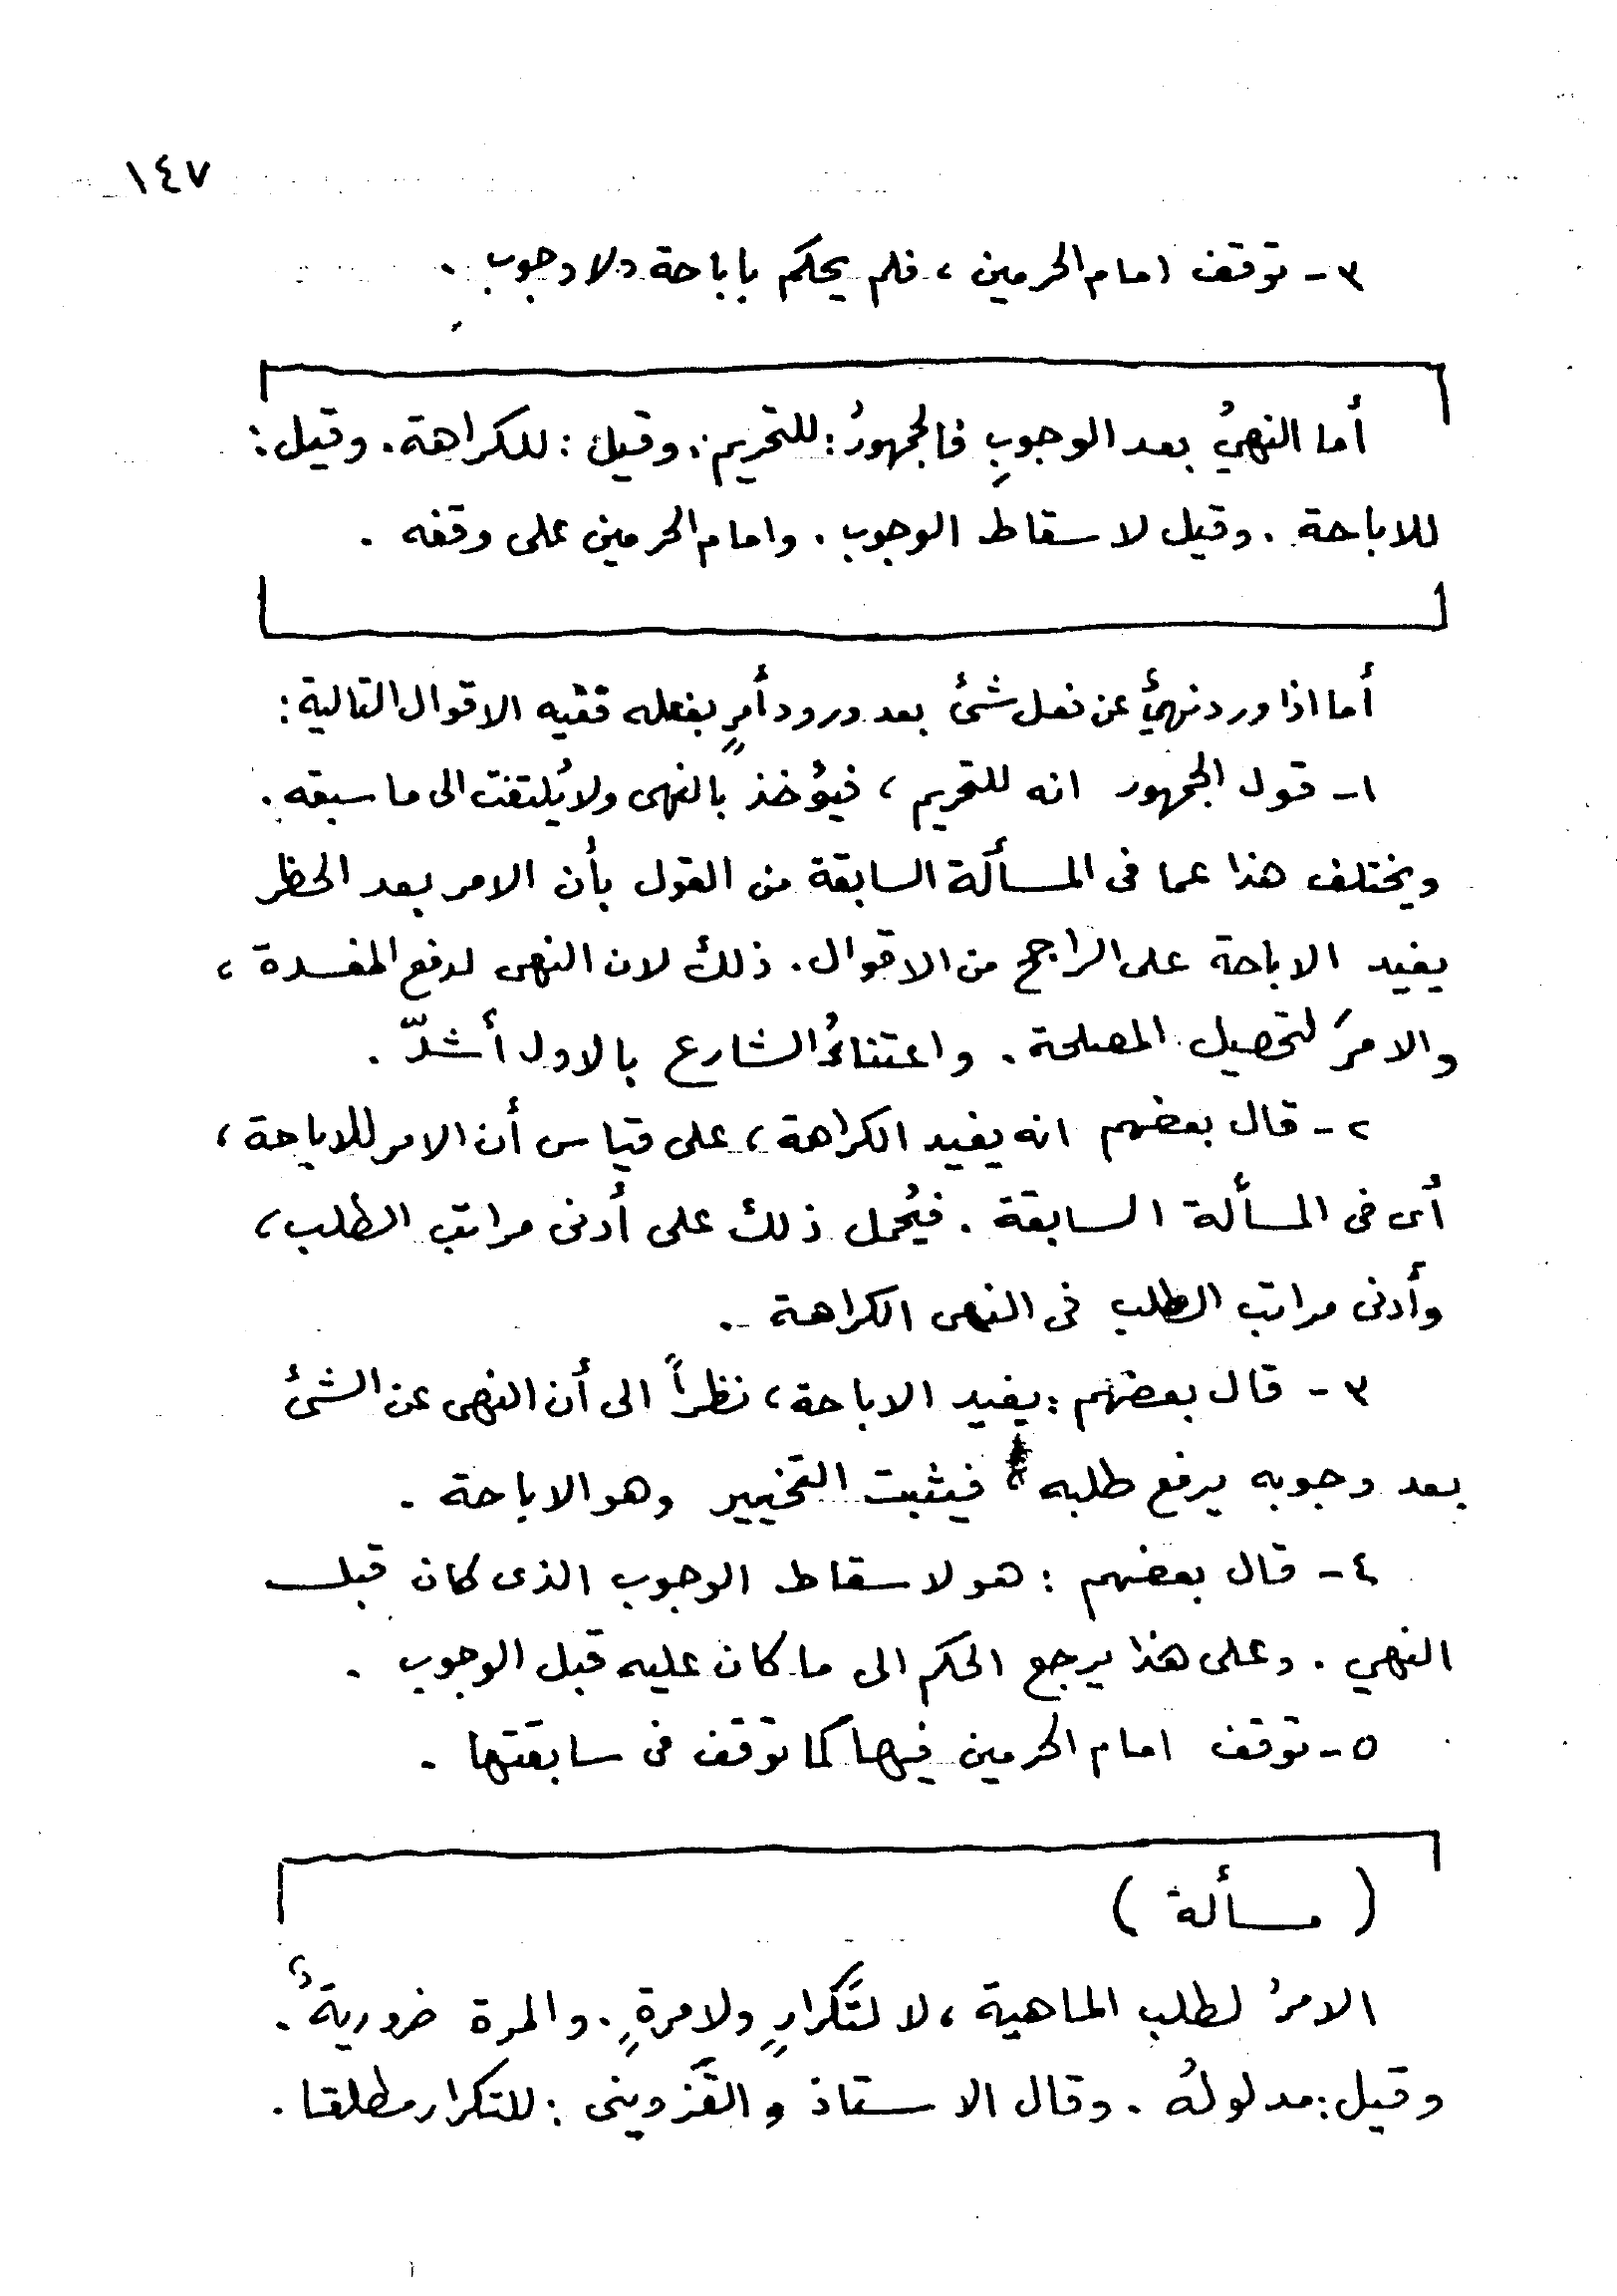 ١٤٧
٣ - توقف امام الحرمين ، فلم يحكم باباحة ولا وجوب .
أما النهيُ بعد الوجوبِ فالجمهورُ : للتحريم . وقيل : للكراهة . وقيل :
للاباحة . وقيل لاسقاط الوجوب . وامام الحرمين على وقفه .
أما اذا ورد نهيٌ عن فعل شئ بعد ورود أمرٍ بفعله ففيه الاقوال التالية :
١ - قول الجمهور انه للتحريم ، فيؤخذ بالنهى ولا يُلتفت الى ما سبقه .
ويختلف هذا عما فى المسألة السابقة من القول بأن الامر بعد الحظر
يفيد الاباحة على الراجح من الاقوال . ذلك لان النهى لدفع المفسدة ،
والامرَ لتحصيل المصلحة . واعتناءُ الشارع بالاول أشدّ .
٢ - قال بعضهم انه يفيد الكراهة ، على قياس أن الامر للاباحة ،
أى فى المسألة السابقة . فيُحمل ذلك على أدنى مراتب الطلب ،
وأدنى مراتب الطلب فى النهى الكراهة .
٣ - قال بعضهم : يفيد الاباحة ، نظراً الى أن النهى عن الشئ
بعد وجوبه يرفع طلبه ، فيثبت التخيير وهو الاباحة .
٤ - قال بعضهم : هو لاسقاط الوجوب الذى كان قبل
النهي . وعلى هذا يرجع الحكم الى ما كان عليه قبل الوجوب .
٥ - توقف امام الحرمين فيها كما توقف فى سابقتها .
( مسألة )
الامرُ لطلب الماهية ، لا لتَكرارٍ ولا مرةٍ . والمرة ضروريةٌ .
وقيل : مدلولُه . وقال الاستاذ والقَزوينى : للتكرار مطلقا .